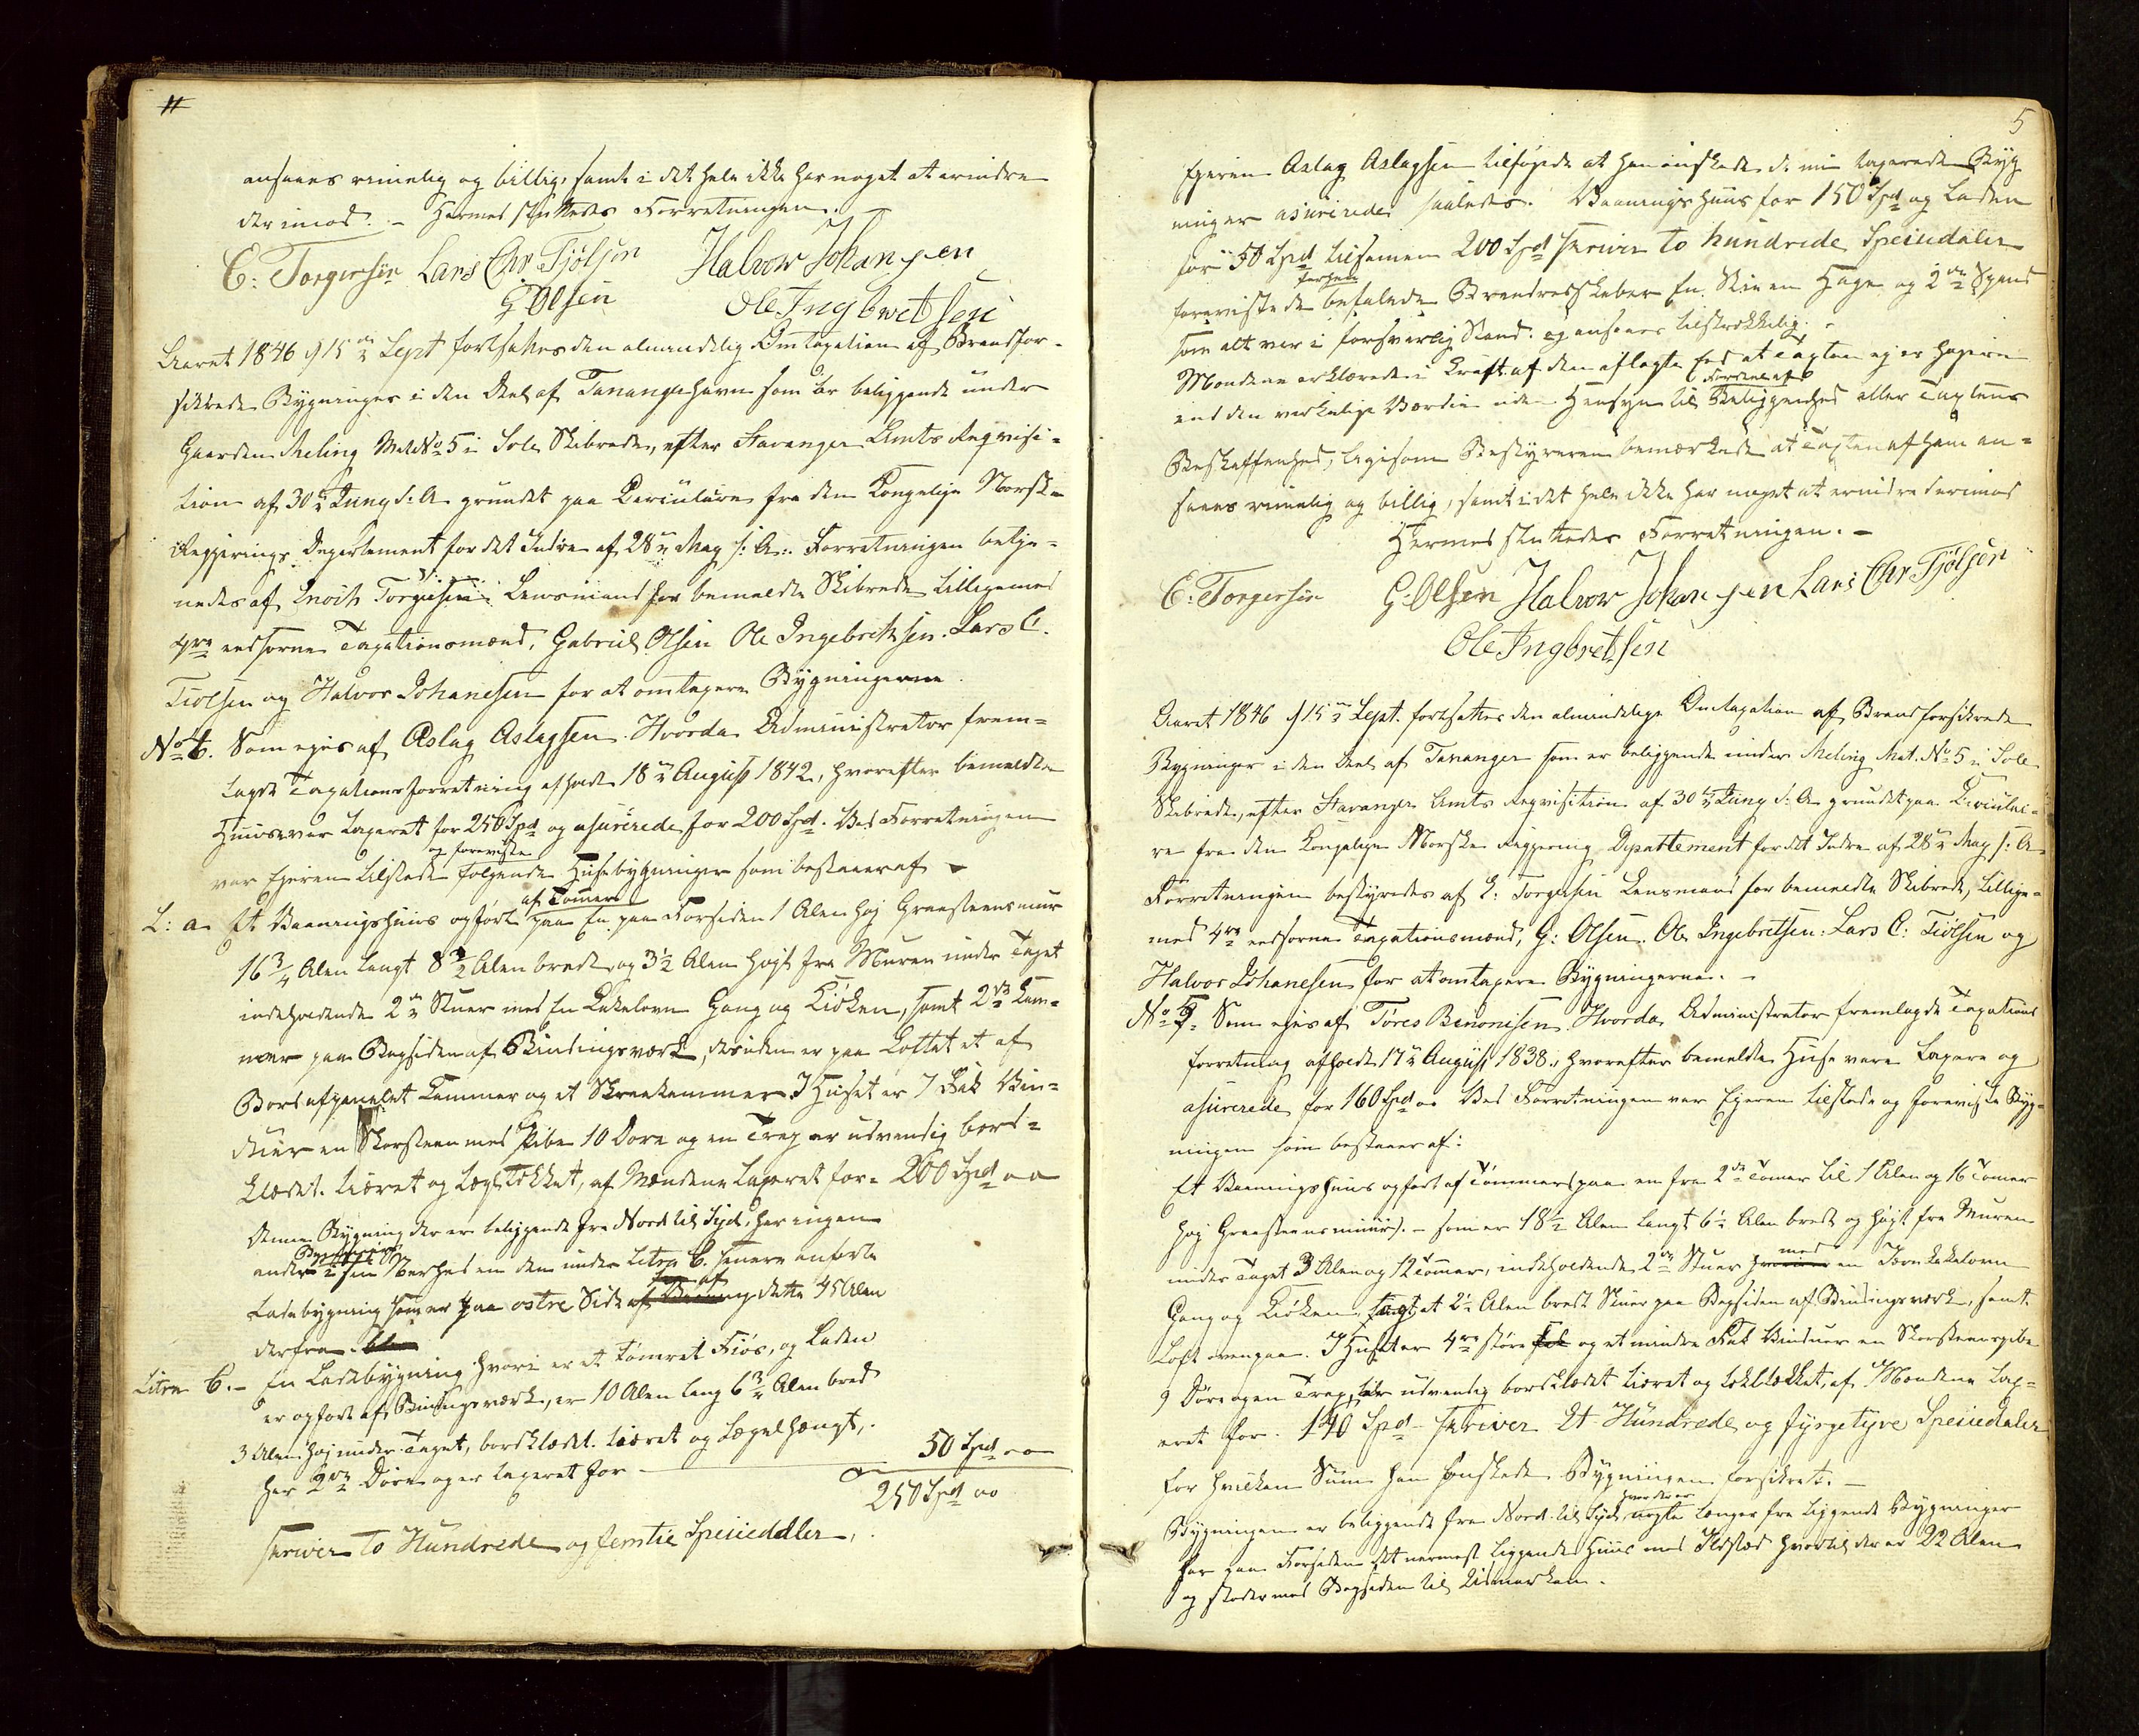 ansaaes rimelig og billig, samt i det hele ikke har noget at erindre
derimod. – Hermed sluttedes Forretningen. –
E: Torgersen Lars Chr Tjølsen Halvor Johannsen
G Olsen Ole Ingbretsen
Aaret 1846 d 15de Sept fortsattes den almindelig Omtaxation af Brandfor-
sikrede Bygninger i den Deel af Tananger Havn som er beliggende under
Gaarden Meling Mat No 5 i Sole Skibrede, efter Stavanger Amts Reqvisi-
tion af 30te Juny d: A grundet paa Circulaire fra den Kongelige Norske
Regjerings Departement for det Indre af 28de May s: A:. Forretningen betje-
nedes af Enoch Torgersen Lensmand for bemeldte Skibrede tilligemed
4re eedsorne Taxationsmænd, Gabriel Olsen Ole Ingebretsen. Lars C.
Tiølsen og Halvor Johanesen for at omtaxere Bygningerne.
No 6. Som eies af Aslag Aslagsen. Hvorda Administrator frem-
lagde Taxationsforretning afholdt 18de August 1842, hvorefter bemeldte
Huus var taxeret for 250 Spd og asurerede for 200 Spd. Ved Forretningen
og foreviste
var Ejeren tilstede følgende Huusebygninger som bestaaer af
af Tømer
L: a Et Vaaningshuus opført paa En paa Forsiden 1 Alen høj Graasteensmur
16 3/4 Alen langt 8 1/2 Alen bredt og 3 1/2 Alen højt fra Muren under Taget
indeholdende 2de Stuer med En Kakelovn Gang og Kiøken, samt 2de Kam-
mer paa Bagsiden af Bindingsværk, desuden er paa Lottet et af
Bord afpanelet Kammer og et Skraakammer I Huset er 7 Fak Vin-
duer en Skorsteen med Pibe 10 Døre og en Trap er udvendig bord-
klædt. Tiæret og Tegltækket, af Mændene taxeret for. 200 Spd oo
Denne Bygning der er beliggende fra Nord til Syd, har ingen
anden i sin Nærhed en den under Litra b. senere anførte
Ladebygning som er paa ostre Side af dette 45 Alen
derfra.
Litra b. – En Ladebygning hvori er et tømret Fiøs, og Laden
er opført af Bindingsværk, er 10 Alen lang 6 3/4 Alen bred
3 Alen høj under Taget, bordklædt. tiæret og Lægelhængt,
har 2de Døre og er taxeret for – 50 Spd oo
250 Spd oo
skriver to Hundrede og femtie Speciedaler.
5
Ejeren Aslag Aslagsen tilføjede at han ønskede de nu taxerede Byg
ninger asurerede saaledes. Vaaningshuus for 150 Spd og Laden
for 50 Spd tilsamen 200 Spd skriver to hundrede Speciedaler
foreviste de befalede Brandredskaber En Skin en Hage og 2de Spand
som alt var i forsvarlig Stand. og ansaaes tilstrækkelig. –
Mændene erklærede i Kraft af den aflagte Eed at Taxten ej er højere
Fordeel af
end den verkelige Værdie uden Hensyn til Beliggenhed eller Taxtens
Beskaffenhed, ligesom Bestyreren bemærkede at Taxten af ham an-
saaes rimelig og billig, samt i det hele ikke har noget at erindre derimod
Hermed sluttedes Forretningen. –
E: Torgersen G: Olsen Halvor Johannsen Lars Chr Tjølsen
Ole Ingbretsen
Aaret 1846 d 15de Sept. fortsattes den almindelige Omtaxation af Brandforsikrede
Bygninger i den Deel af Tananger som er beliggende under Meling Mat. No 5 i Sole
Skibrede, efter Stavanger Amts Reqvisition af 30te Juny d: A grundet paa Circulai-
re fra den Kongelige Norske Regjering Departtement for det Indre af 28de May s: A
Forretningen bestyredes af E: Torgersen Lensmand for bemeldte Skibrede, tillige-
med 4re eedsorne Taxationsmænd, G: Olsen. Ole Ingebretsen. Lars C: Tiølsen og
Halvor Johanesen for at omtaxere Bygningerne. –
No 9. Som eies af Tores Benonisen Hvorda Administrator fremlagde Taxations
forretning afholdt 17de August 1838, hvorefter bemeldte Huse vare taxere og
asurerede for 160 Spd oo Ved Forretningen var Ejeren tilstede og foreviste Byg-
ningen som bestaaer af:
Et Vaaningshuus opført af Tømmer (paa en fra 2de Tomer til 1 Alen og 16 Tomer
høj Graasteensmuur). – som er 18 1/2 Alen langt 6 1/2 Alen bredt og højt fra Muren
med
under Taget 3 Alen og 12 Tomer, indeholdende 2de Stuer en Jern kakelovn
Gang og Kiøken, et 2 1/2 Alen bredt Skuer paa Bagsiden af Bindingsværk, samt
Loft ovenpaa. I Huset er 4re støre og et mindre Fak Vinduer en Skorsteenspibe
9 Døre og en Trap, udvendig bordklædet tiæret og taktækket, af Mændene tax-
eret for. 140 Spd – skriver Et Hundrede og fyrgetyve Speciedaler
for hvilken Sum han ønskede Bygningen forsikret. –
hvor der er
Bygningen er beliggende fra Nord til Syd, nogle længer fra liggende Bygninger
har paa Forsiden det nærmest liggende Huus med Ildsted hvortil der er 22 Alen
og støder med Bagsiden til Udmarken.